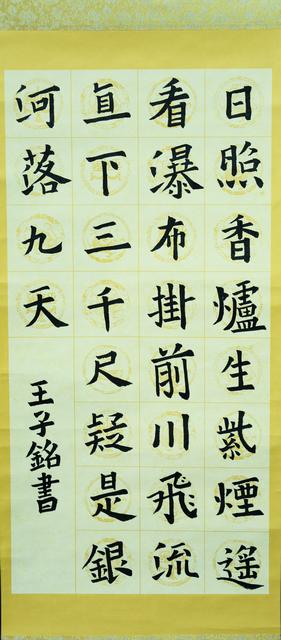 日照香爐生紫煙遙
看瀑布掛前川飛流
直下三千尺疑是銀
河落九天
王子銘書